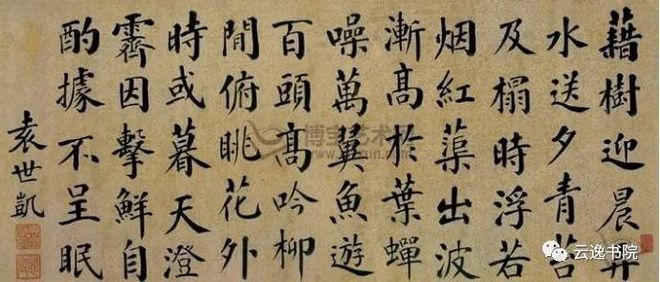 藉樹迎晨井
水送夕青苔
及榻時浮若
烟紅蕖出波
漸高於葉蟬
噪萬翼魚遊
百頭高吟柳
間俯眺花外
時或暮天澄
霽因擊鮮自
酌據不呈眠
袁世凱
博宝艺术网
云逸书院